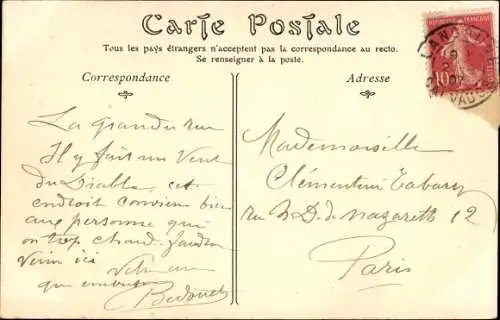 Carte Postale
Tous les pays étrangers n'acceptent pas la correspondance au recto.
Se renseigner à la poste.
Correspondance
Adresse
La grande rue
Il y fait un vent
du Diable, cet
endroit convient bien
aux personne qui
on trop chaud. faudra
venir ici
que
Bedouet
Mademoiselle
Clémentine Tabary
rue N. D. de Nazareth 12
Paris
10